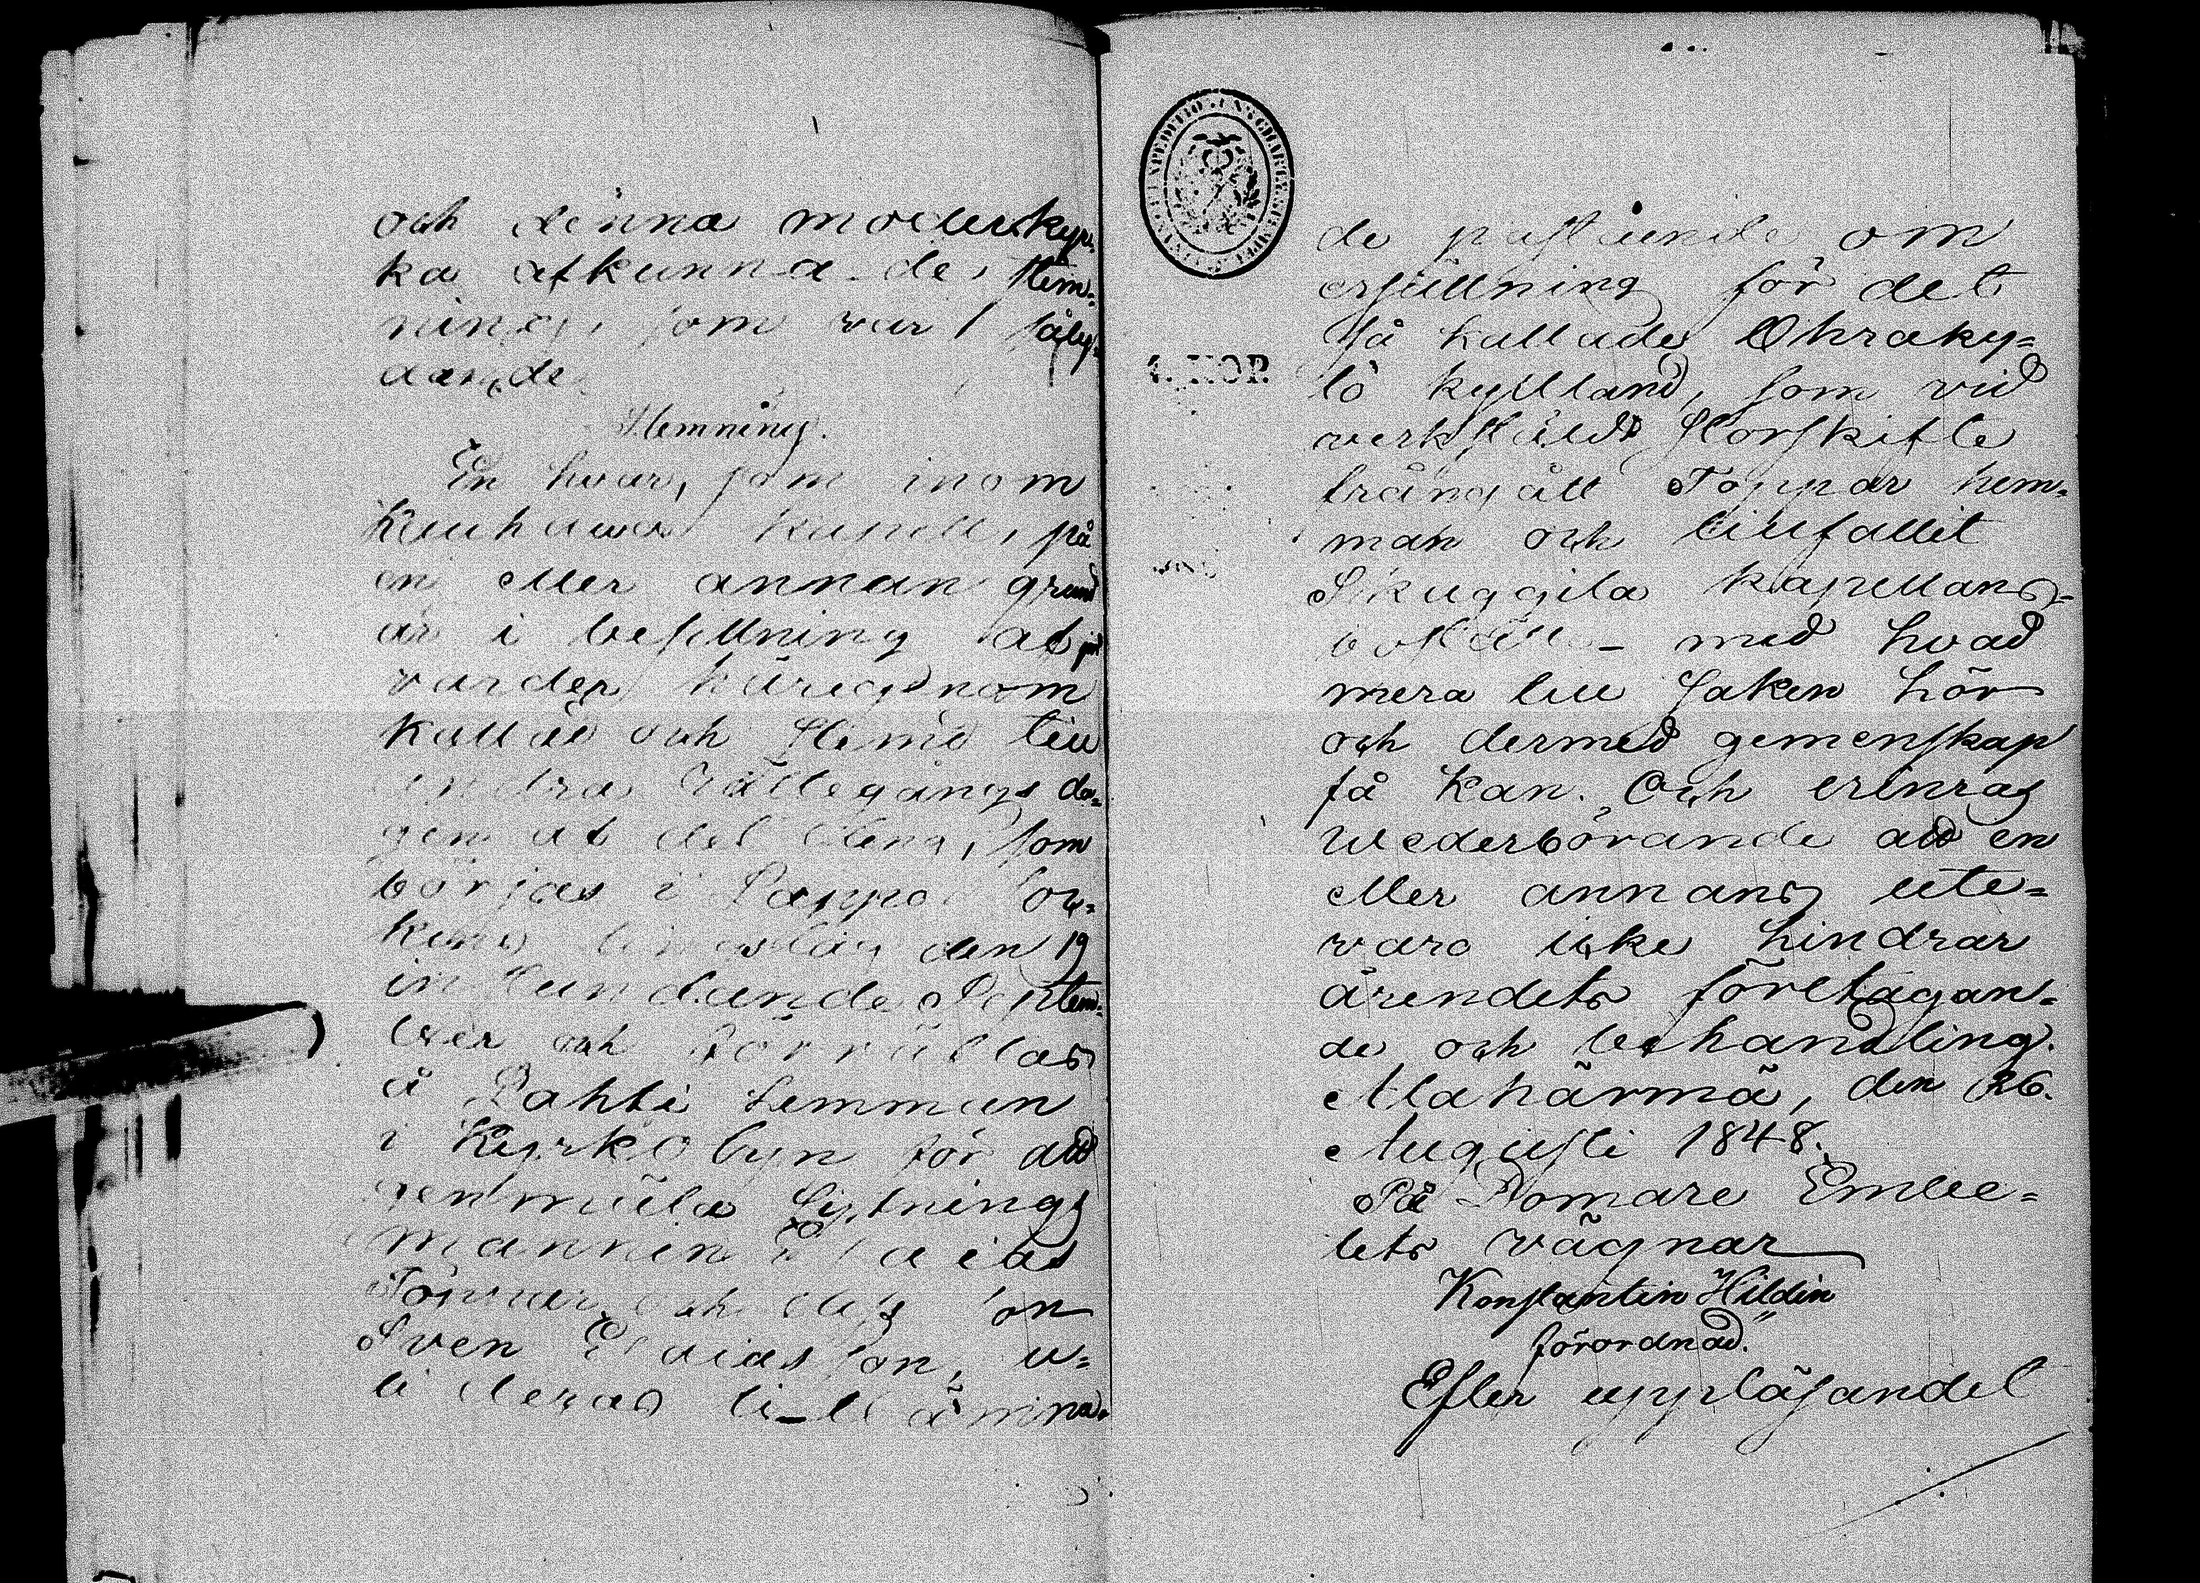 och denna moderkyr-
ka afkunna de Stem-
ning, som var såly-
dande
Stemning.
En hvar, som inom
Kauhava kapell, på
en eller annan grund
är i besittning af
varder härigenom
kallad och stemd till
andra Rättegångs da-
gen af det ting, som
börjas i Lappo Soc-
kens tingslag den 19
instundande Septem-
ber och förrättas
å Pahti hemman
i Kyrkobyn för att
genmäla
mannen Esaias
Töppär och dess son
Sven Esaiasson, u-
ti deras tillämna-
4. KOP.
de påstående om
ersättning för det
så kallade Ohraky-
tö kyttland, som vid
verkstäldt storskifte
frångått Töppär hem-
man och tillfallit
Skuggila kapellans-
boställe – med hvad
mera till saken hör
och dermed gemenskap
få kan. Och erinras
wederbörande att en
eller annans ute-
varo icke hindrar
ärendets företagan-
de och behandling.
Alahärmä, den 26.
Augusti 1848.
På Domare Embe-
tets vägnar
Konstantin Hildin
förordnad.
Efter uppläsandet